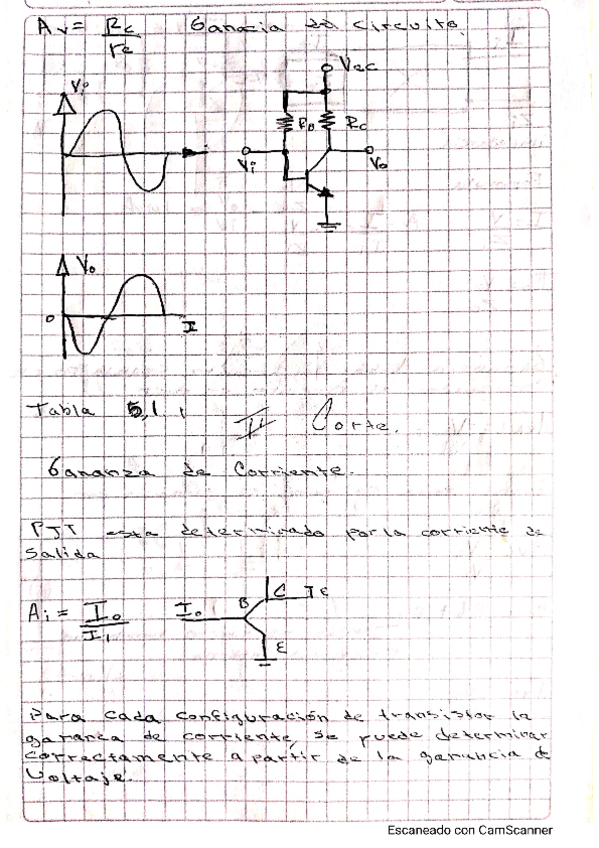 Av = Rc/re Ganacia del circuito.
Vi
Vcc
RB Rc
Vi Vo
Vo
0 I
Tabla 5.1
II Corte.
Gananza de Corriente.
PJT esta determinado por la corriente de
Salida
Ai = Io/Ii Io B C IE
E
Para cada configuración de transistor la
gananca de corriente, se puede determinar
correctamente a partir de la ganancia de
Voltaje.
Escaneado con CamScanner